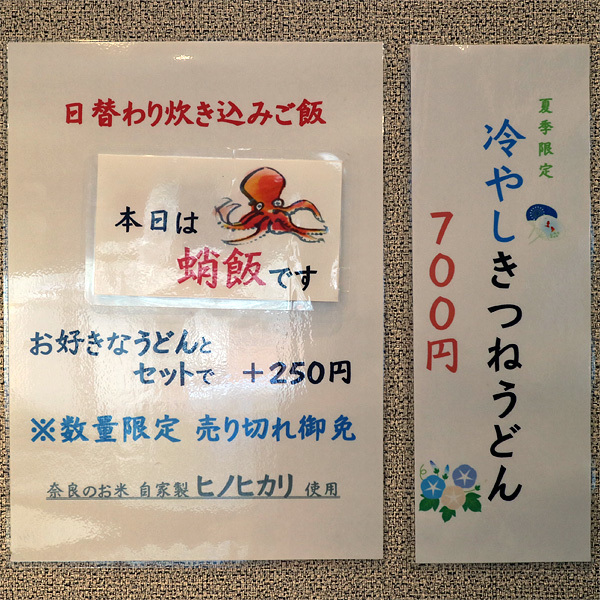 日替わり炊き込みご飯
本日は
蛸飯です
お好きなうどんと
セットで ＋250円
※数量限定 売り切れ御免
奈良のお米 自家製 ヒノヒカリ 使用
夏季限定
冷やしきつねうどん
700円